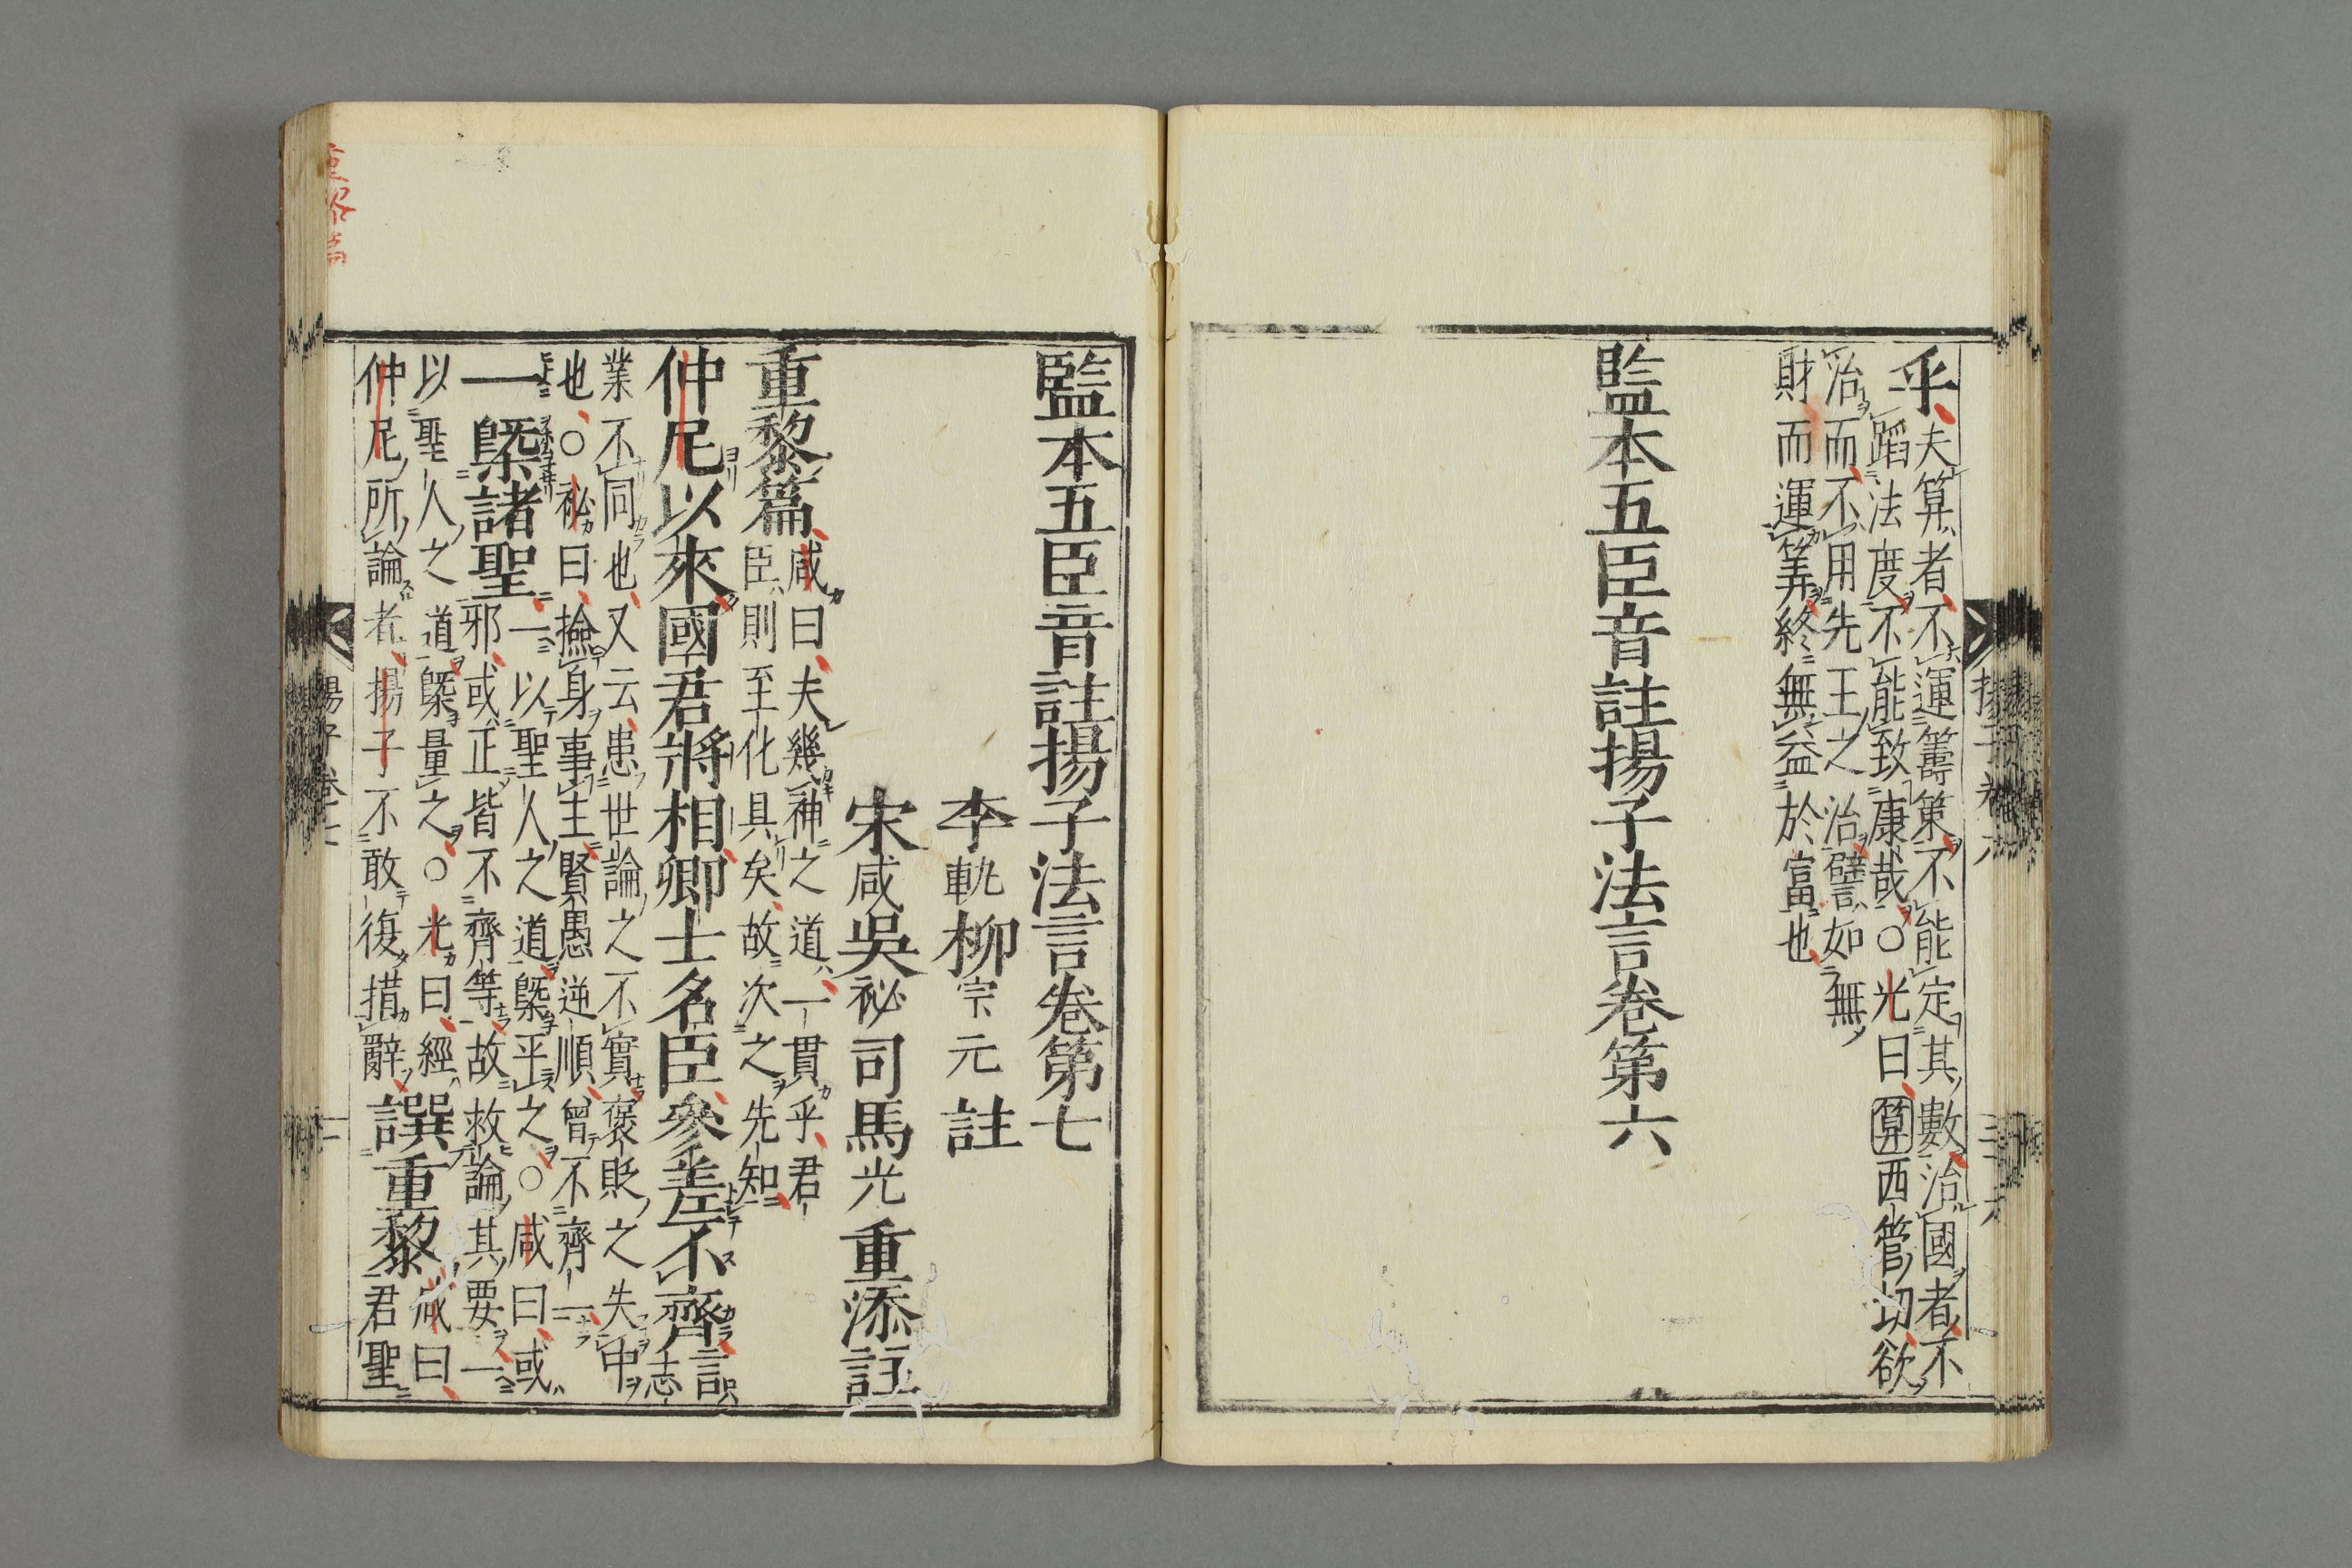 乎
夫算者不運籌策不能定其數治國者不
蹈法度不能致康哉〇光曰算西管切欲
治而不用先王之治譬如無
財而運筭終無益於富也
監本五臣音註揚子法言卷第六
監本五臣音註揚子法言卷第七
李軌柳宗元註
宋咸吳祕司馬光重添註
重黎篇
咸曰夫幾神之道一貫乎君
臣則至化具矣故次之先知
仲尼以來國君將相卿士名臣參差不齊
言
志
業不同也又云患世論之不實褒貶之失中
也〇祕曰撿身事主賢愚逆順曾不齊一
一槩諸聖
一以聖人之道槩平之〇咸曰或
邪或正皆不齊等故救論其要一
以聖人之道槩量之〇光曰經
仲尼所論者揚子不敢復措辭
譔重黎
咸曰
君聖
揚子卷七